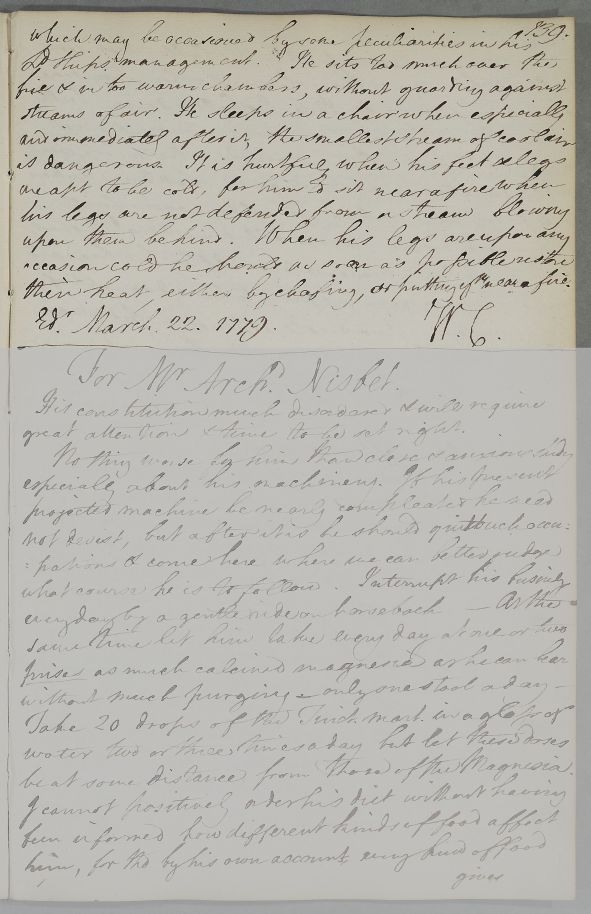 139.
which may be occasioned by some peculiarities in his
Ld ships management. He sits too much over the
fire & in too warm chambers, without guarding against
streams of air. He sleeps in a chair when especially
and immediately after it, the smallest stream of cool air
is dangerous. It is hurtful, when his feet & legs
are apt to be cold, for him to sit near a fire when
his legs are not defended from a stream blowing
upon them behind. When his legs are upon any
occasion cold he should as soon as possible restore
their heat, either by chafing, or putting ym near a fire.
Edr. March. 22. 1779. W. C.
For Mr Archd. Nisbet.
His constitution much disordered & will require
great attention & time to be set right.
Nothing worse for him than close & anxious study
especially about his machinery. If his present
projected machine be nearly compleated he need
not desist, but after it is he should quitt such occu:
:pations & come here where we can better judge
what course he is to follow. Interrupt his business
every day by a gentle ride on horseback — At the
same time let him take every day at one or two
prises as much calcined magnesia as he can bear
without much purging – only one stool a day –
Take 20 drops of the Tinct. mart. in a glass of
water two or three times a day but let these doses
be at some distance from those of the Magnesia.
I cannot positively order his diet without having
been informed how different kinds of food affect
him, for tho by his own account every kind of food
gives